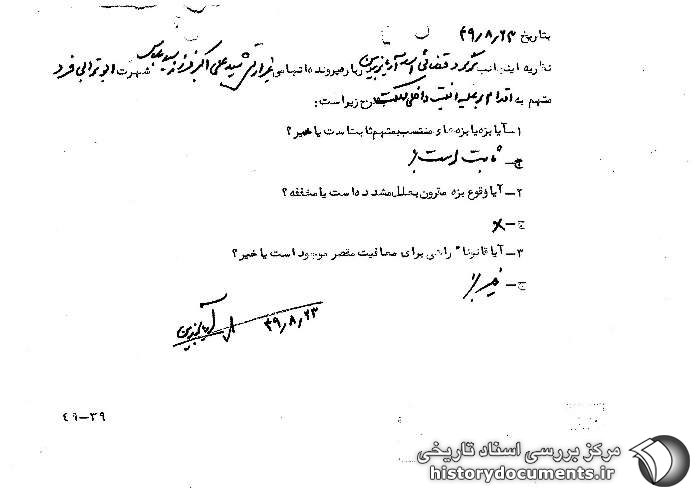 بتاریخ ۴۹٫۸٫۲۳
نظریه اینجانب سرگرد قضائی آریابرزین درباره پرونده اتهامی غیر ارتشی سید علی اکبر فرزند سید عباس شهرت ابوترابی فرد
متهم به اقدام بر علیه امنیت داخلی مملکت بشرح زیر است:
۱- آیا بزه یا بزه های منتسب بمتهم ثابت است یا خیر؟
ج- ثابت است
۲- آیا وقوع بزه مقرون بعلل مشدده است یا مخففه؟
ج- x
۳- آیا قانوناً راهی برای معافیت مقصر موجود است یا خیر؟
ج- خیر
آریابرزین ۴۹٫۸٫۲۳
۴۹-۳۹
مرکز بررسی اسناد تاریخی
historydocuments.ir